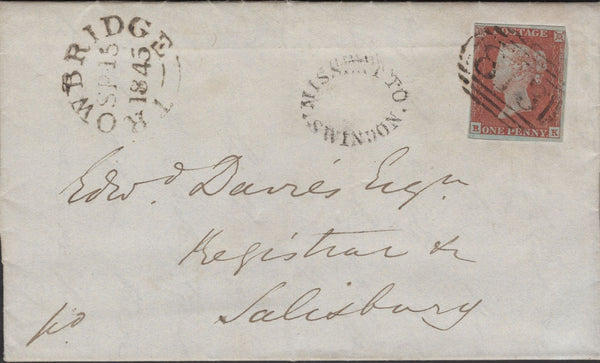 TROWBRIDGE
SP 15
1845
MISSENT TO
SWINDON
POSTAGE
ONE PENNY
R K
Edwd Davies Esqr
Registrar &c
Salisbury